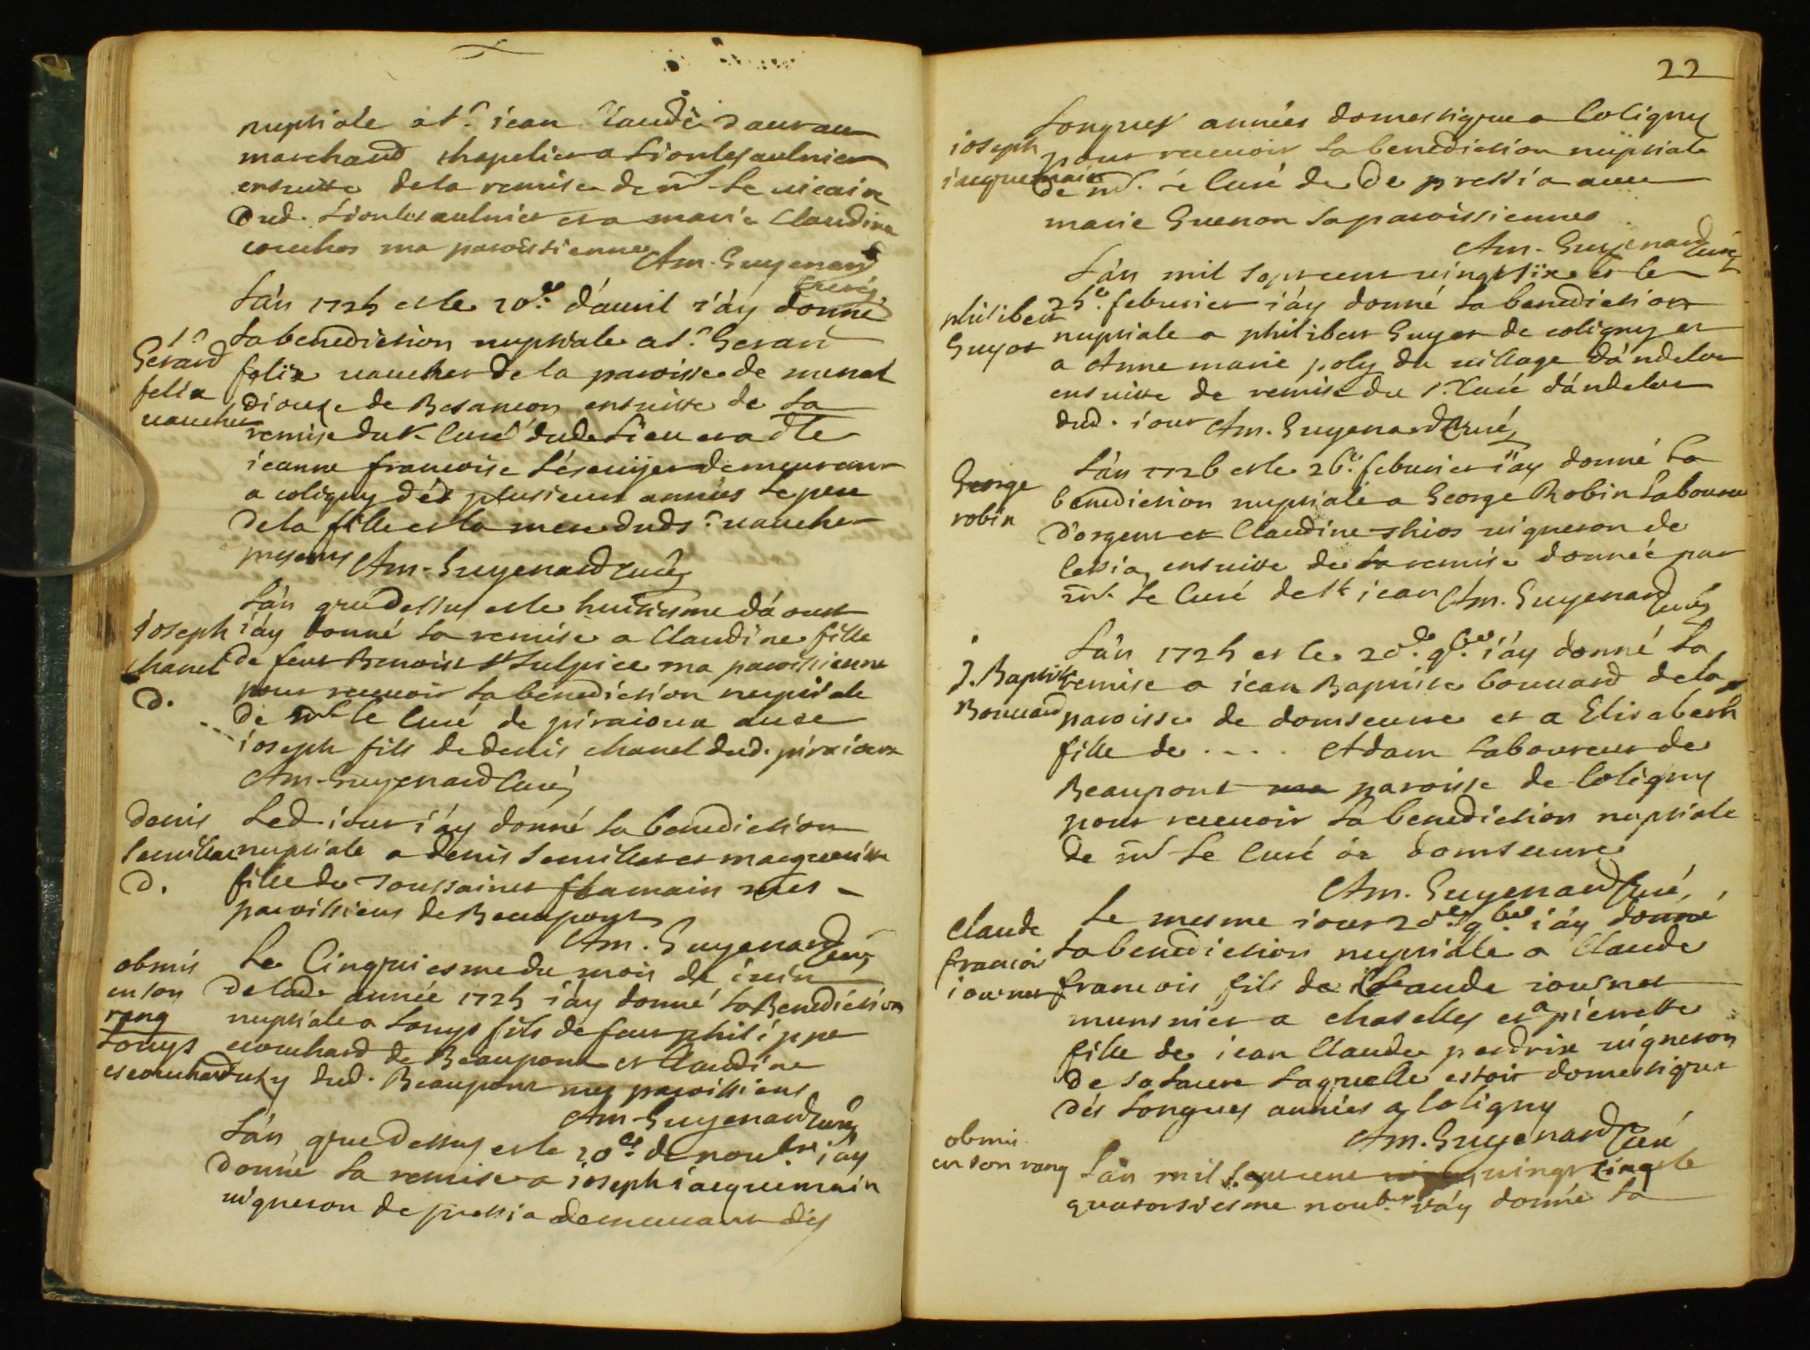 nuptiale a sr. jean Claude
marchand chapelier a Lionlesaulnier
ensuitte de la remise de mr. le vicaire
dud. Lionlesaulnier et a marie Claudine
ma paroissienne Am. Guyenard
Curé
L'an 1725 et le 20e. d'avril i'ay donné
la benediction nuptiale a sr. Gerard
felix vaucher de la paroisse de
diocese de Besancon ensuitte de la
remise du sr. Curé dud. Lieu et a dlle
jeanne francoise demeurant
a coligny dés plusieurs années le pere
de la fille et la mere dud. sr. vaucher
presents Am. Guyenard Curé
sr.
Gerard
felix
vaucher
L'an que dessus et le huitiesme d'aoust
i'ay donné la remise a Claudine fille
de feu Benoist St Sulpice ma paroissienne
pour recevoir la benediction nuptiale
de mr. le Curé de piraioux avec
ioseph fils de denis chanel dud. piraioux
Am. Guyenard Curé
Joseph
chanel
D.
Led. iour i'ay donné la benediction
nuptiale a denis et marguerite
fille de Toussainct flamain mes
paroissiens de Beaupont
Am. Guyenard Curé
denis
D.
Le Cinquiesme du mois de iuin
de lad. année 1725 i'ay donné la Benediction
nuptiale a Louys fils de feu philippe
escouchard de Beaupont et Claudine
dud. Beaupont mes paroissiens
Am. Guyenard Curé
obmis
en son
rang
Louys
escouchard
L'an que dessus et le 20e. de noubre i'ay
donné la remise a ioseph iacquemain
vigneron de pressia demeurant dés
22
Longues années domestique a Coligny
pour recevoir la benediction nuptiale
de mr. le Curé de De pressia avec
marie Guenon sa paroissienne
Am. Guyenard Curé
ioseph
iacquemain
L'an mil sept cent vingt six et le
25e. febvrier i'ay donné la benediction
nuptiale a philibert Guyot de coligny et
a Anne marie poly du village d'andelot
ensuitte de remise du sr. Curé d'andelot
dud. iour Am. Guyenard Curé
philibert
Guyot
L'an 1726 et le 26e. febvrier i'ay donné la
benediction nuptiale a George Robin Laboureur
d'orgent et Claudine vigneron de
Cessia ensuitte de la remise donnée par
mr. le Curé de St jean Am. Guyenard Curé
George
robin
L'an 1725 et le 20e. 9bre. i'ay donné la
remise a iean Baptiste bouuard de la
paroisse de domseure et a Elisabeth
fille de .... Adam laboureur de
Beaupont ma paroisse de Coligny
pour recevoir la benediction nuptiale
de mr. le Curé de domseure
Am. Guyenard Curé
J. Baptiste
Bouuard
Le mesme iour 20e. 9bre. i'ay donné
la benediction nuptiale a Claude
francois fils de Claude iournet
munsnier a chaselles et a pierrette
fille de iean Claude perdrix vigneron
de laquelle estoit domestique
dés longues années a Coligny
Am. Guyenard Curé
Claude
francois
iournet
obmis
en son rang
L'an mil sept cent vingt cinq et le
quatorsiesme noubr. i'ay donné la